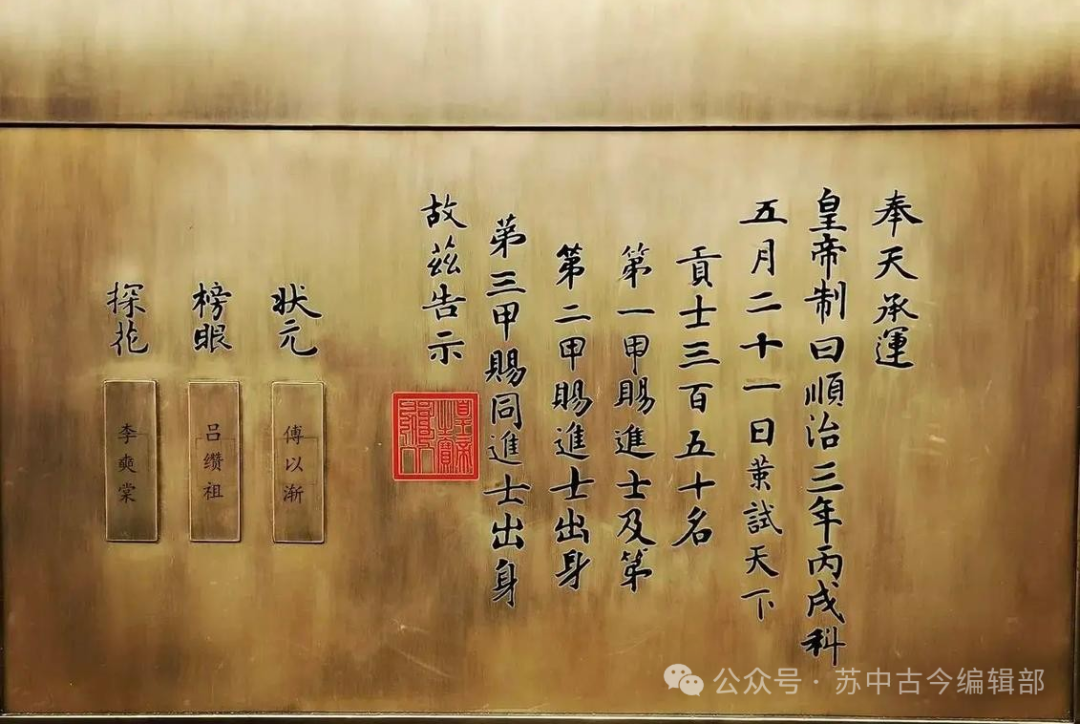 奉天承運
皇帝制曰順治三年丙戌科
五月二十一日策試天下
貢士三百五十名
第一甲賜進士及第
第二甲賜進士出身
第三甲賜同進士出身
故茲告示
皇帝之寶
状元
傅以渐
榜眼
吕缵祖
探花
李奭棠
公众号·苏中古今编辑部